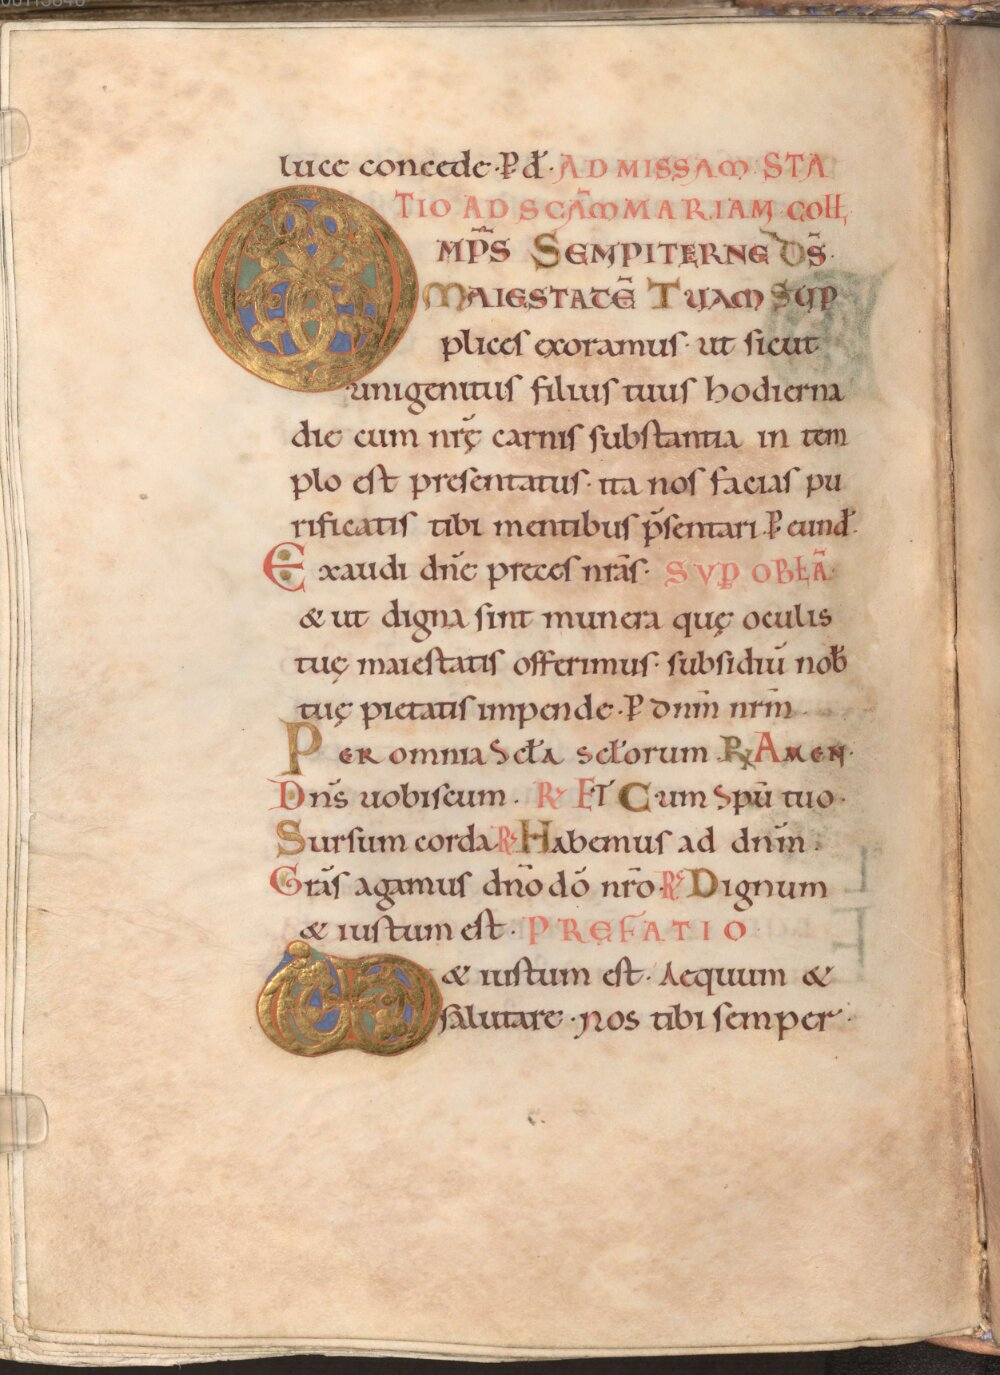 luce concede· P d̄· AD MISSAM· STA
TIO AD SCĀM MARIAM COLL̄
OMP̄S SEMPITERNE D̄S·
MAIESTATĒ TUAM SUP
plices exoramus· ut sicut
unigenitus filius tuus hodierna
die cum nrę̄ carnis substantia in tem
plo est presentatus· ita nos facias pu
rificatis tibi mentibus p̄sentari· P eund̄·
Exaudi dn̄e preces nrās· SUP OBLĀ·
& ut digna sint munera quę oculis
tuę maiestatis offerimus· subsidiū nob̄
tuę pietatis impende· P dnm̄ nrm̄
PER omnia Scl̄a scl̄orum R̷ AMEN·
Dn̄s uobiscum· R̷ ET Cum Spū tuo·
Sursum corda R̷ Habemus ad dnm̄·
Grās agamus dn̄o dō nrō· R̷ Dignum
& iustum est· PREFATIO·
UD & iustum est· Aequum &
salutare· Nos tibi semper·